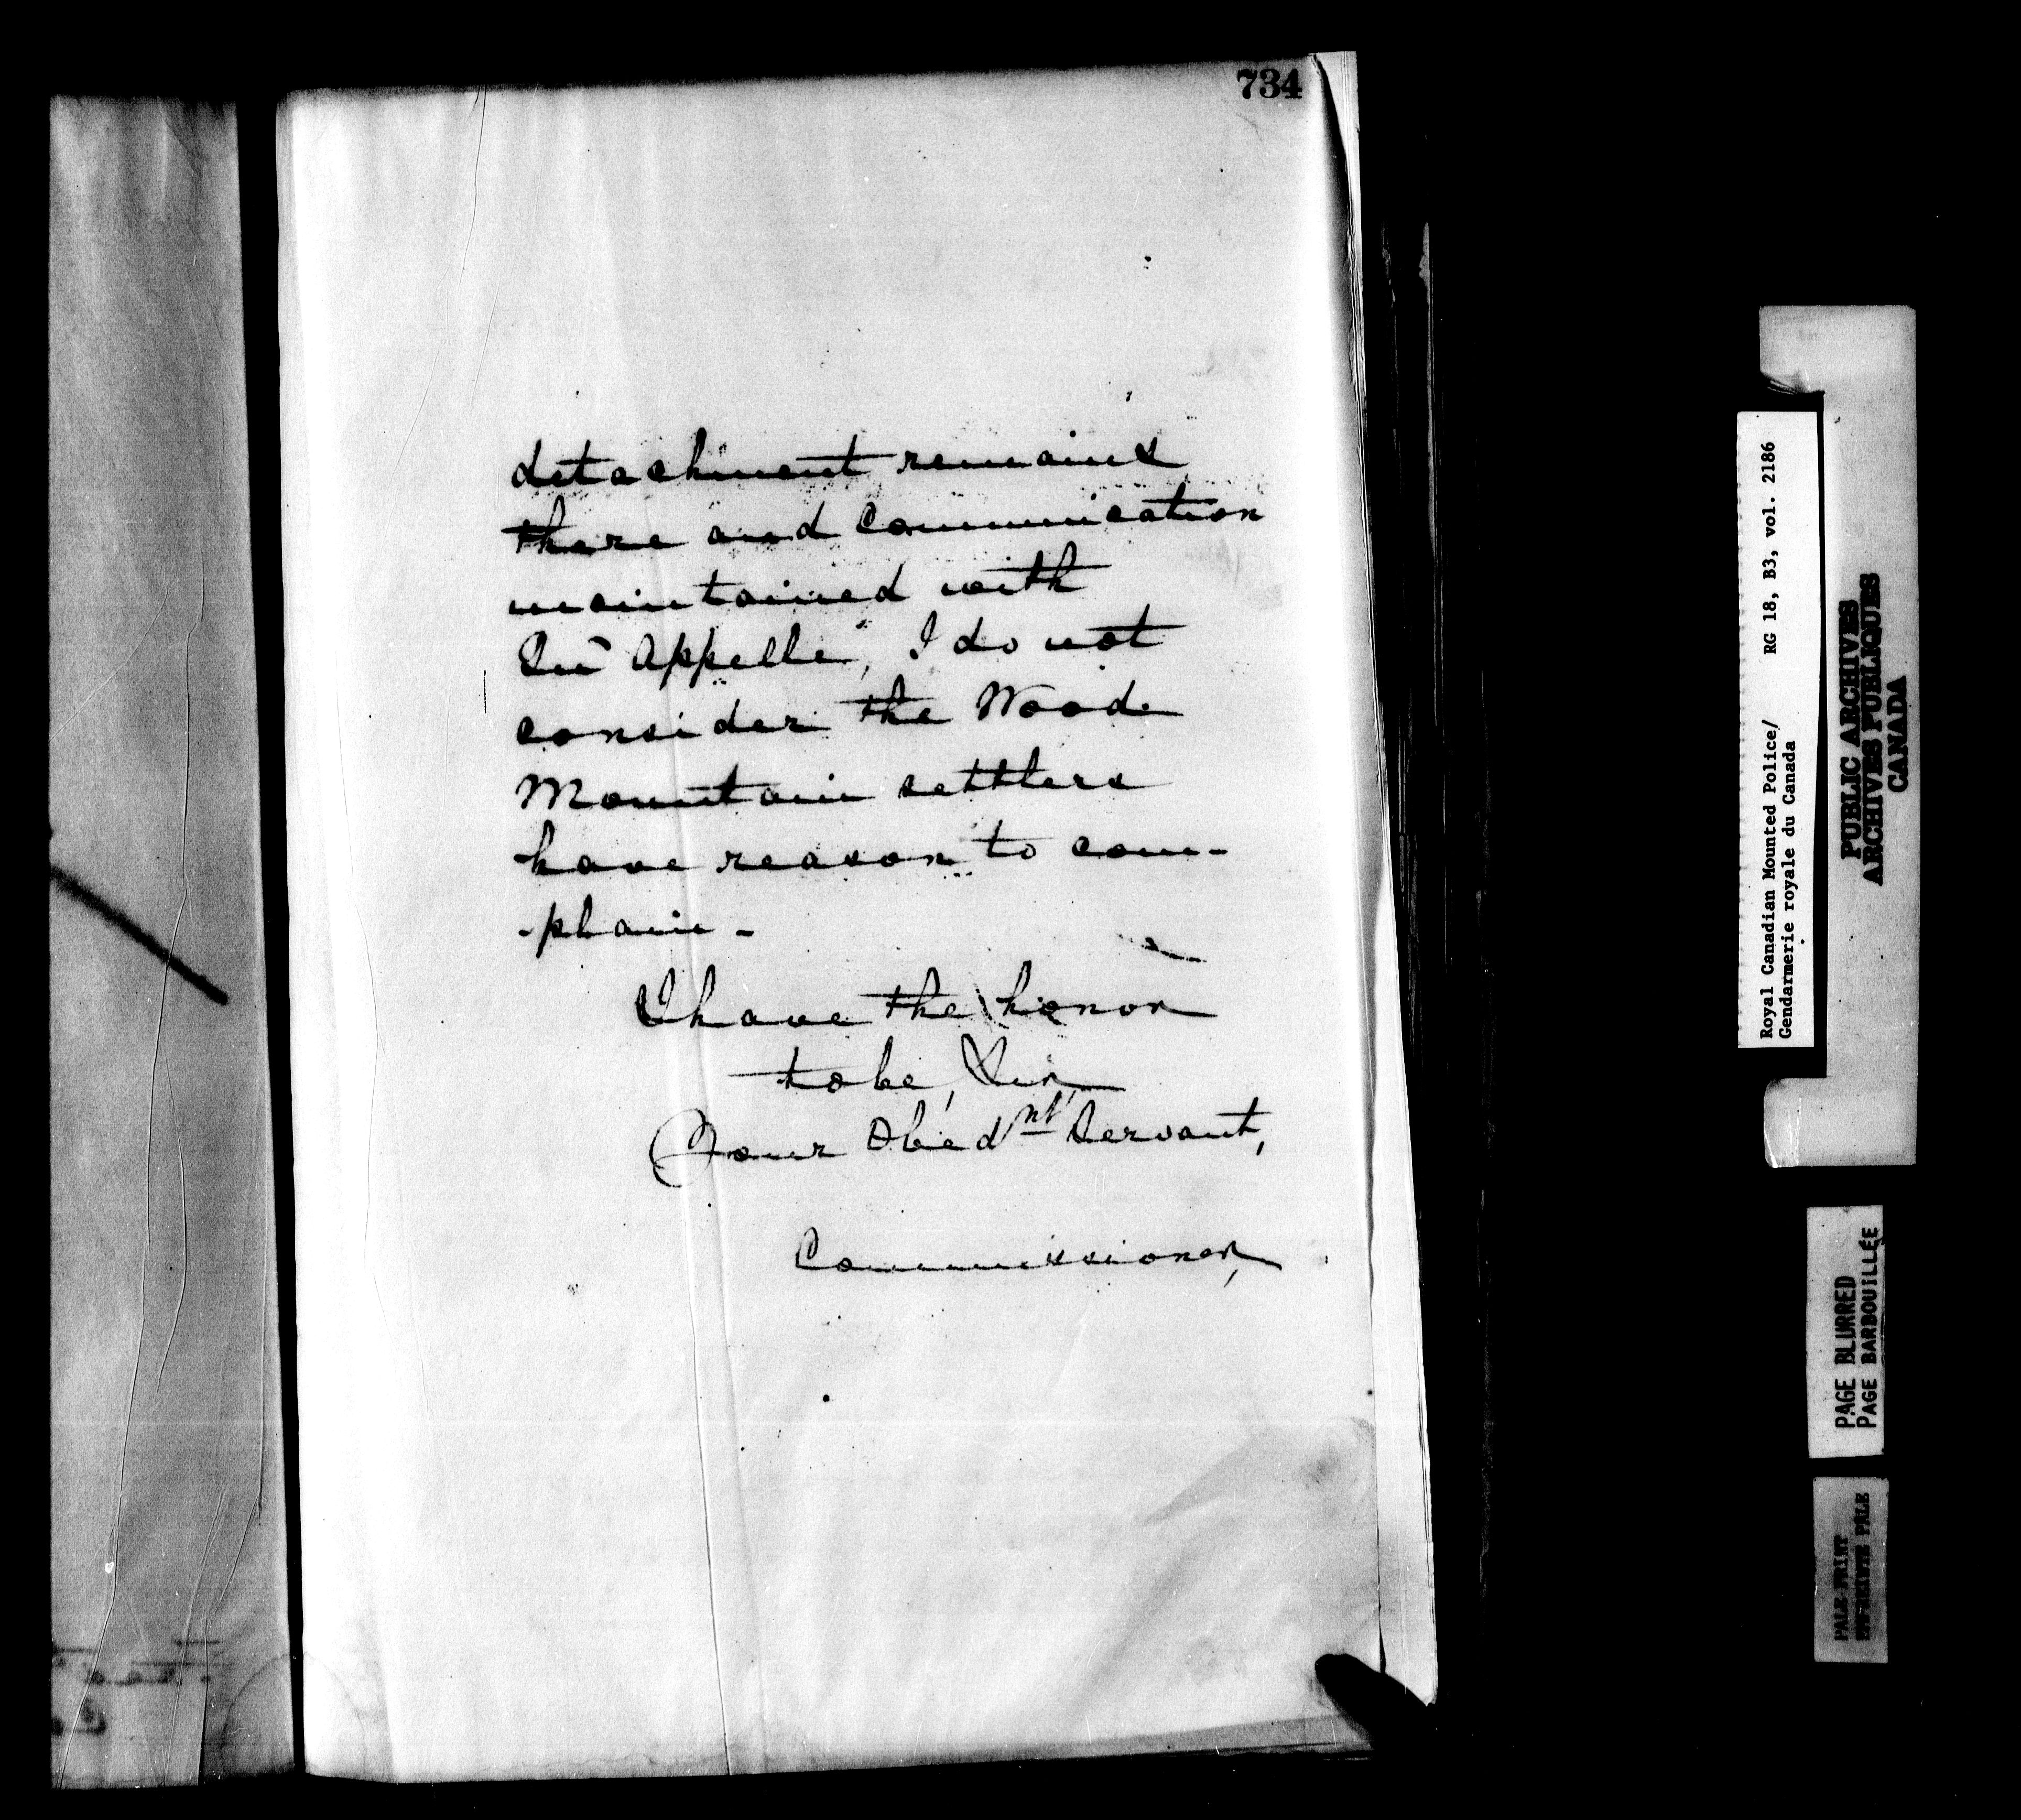 734
detachment remains
there and Communication
maintained with
Qu'Appelle, I do not
consider the Wood
Mountain settlers
have reason to com-
-plain -
I have the honor
to be, Sir,
Your Obednt Servant,
Commissioner,
Royal Canadian Mounted Police/ RG 18, B3, vol. 2186
Gendarmerie royale du Canada
PUBLIC ARCHIVES
ARCHIVES PUBLIQUES
CANADA
PAGE BLURRED
PAGE BARBOUILLÉE
PALE PRINT
EPREUVE PALE